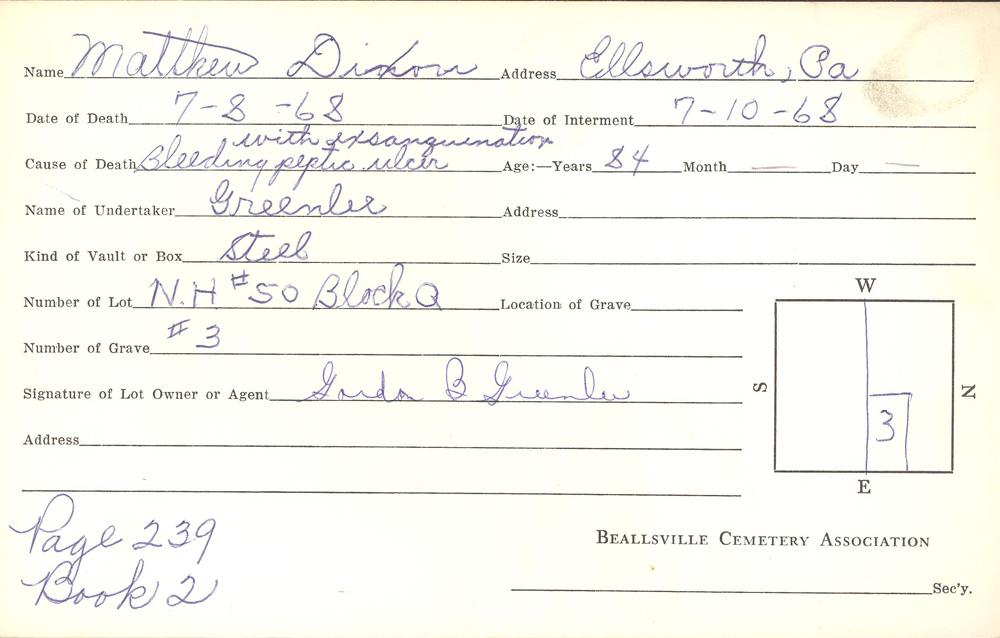 Name Matthew Dixon Address Ellsworth, Pa
Date of Death 7-8-68 Date of Interment 7-10-68
with exsanguination
Cause of Death Bleeding peptic ulcer Age:—Years 84 Month — Day —
Name of Undertaker Greenlee Address
Kind of Vault or Box Steel Size
Number of Lot N.H #50 Block Q Location of Grave
W
Number of Grave #3
Signature of Lot Owner or Agent Gordon B Greenlee
S N
3
Address
E
Page 239
Beallsville Cemetery Association
Book 2
Sec'y.